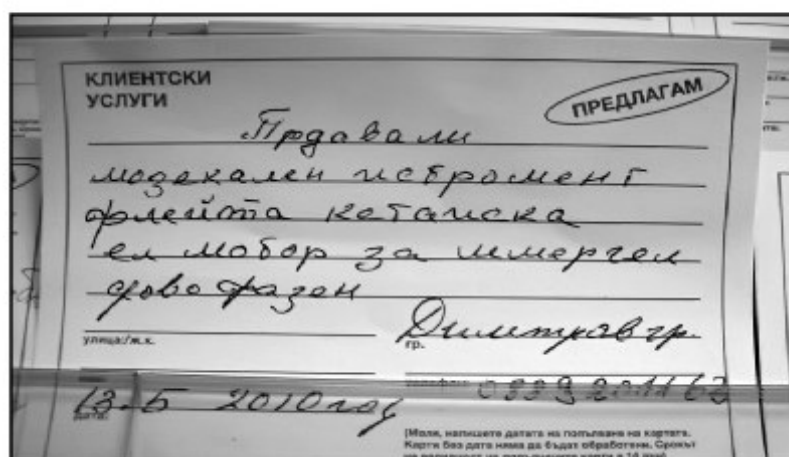 КЛИЕНТСКИ
УСЛУГИ
ПРЕДЛАГАМ
Прдавали
мозекален истромент
флейта кетаиска
ел мотор за шмергел
фово фазен
улица/ж.к.
гр.
Димитравгр.
13.5 2010 год
дата:
(Моля, напишете датата на попълване на картата.
Карти без дата няма да бъдат обработени. Срокът